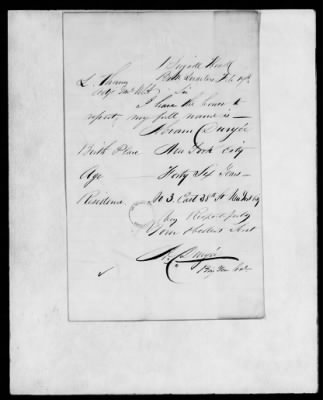 Brigade
Head Quarters Feb 19th
L. Thomas
Adjt Genl U.S.A.
Sir
I have the honor to
report my full name is —
Abram Duryée
Birth Place New York City
Age Forty Six Years —
Residence No 3. East 38th St New York City
Very Respectfully
Your Obedient Servt
A. Duryée
Brig Gen Vols